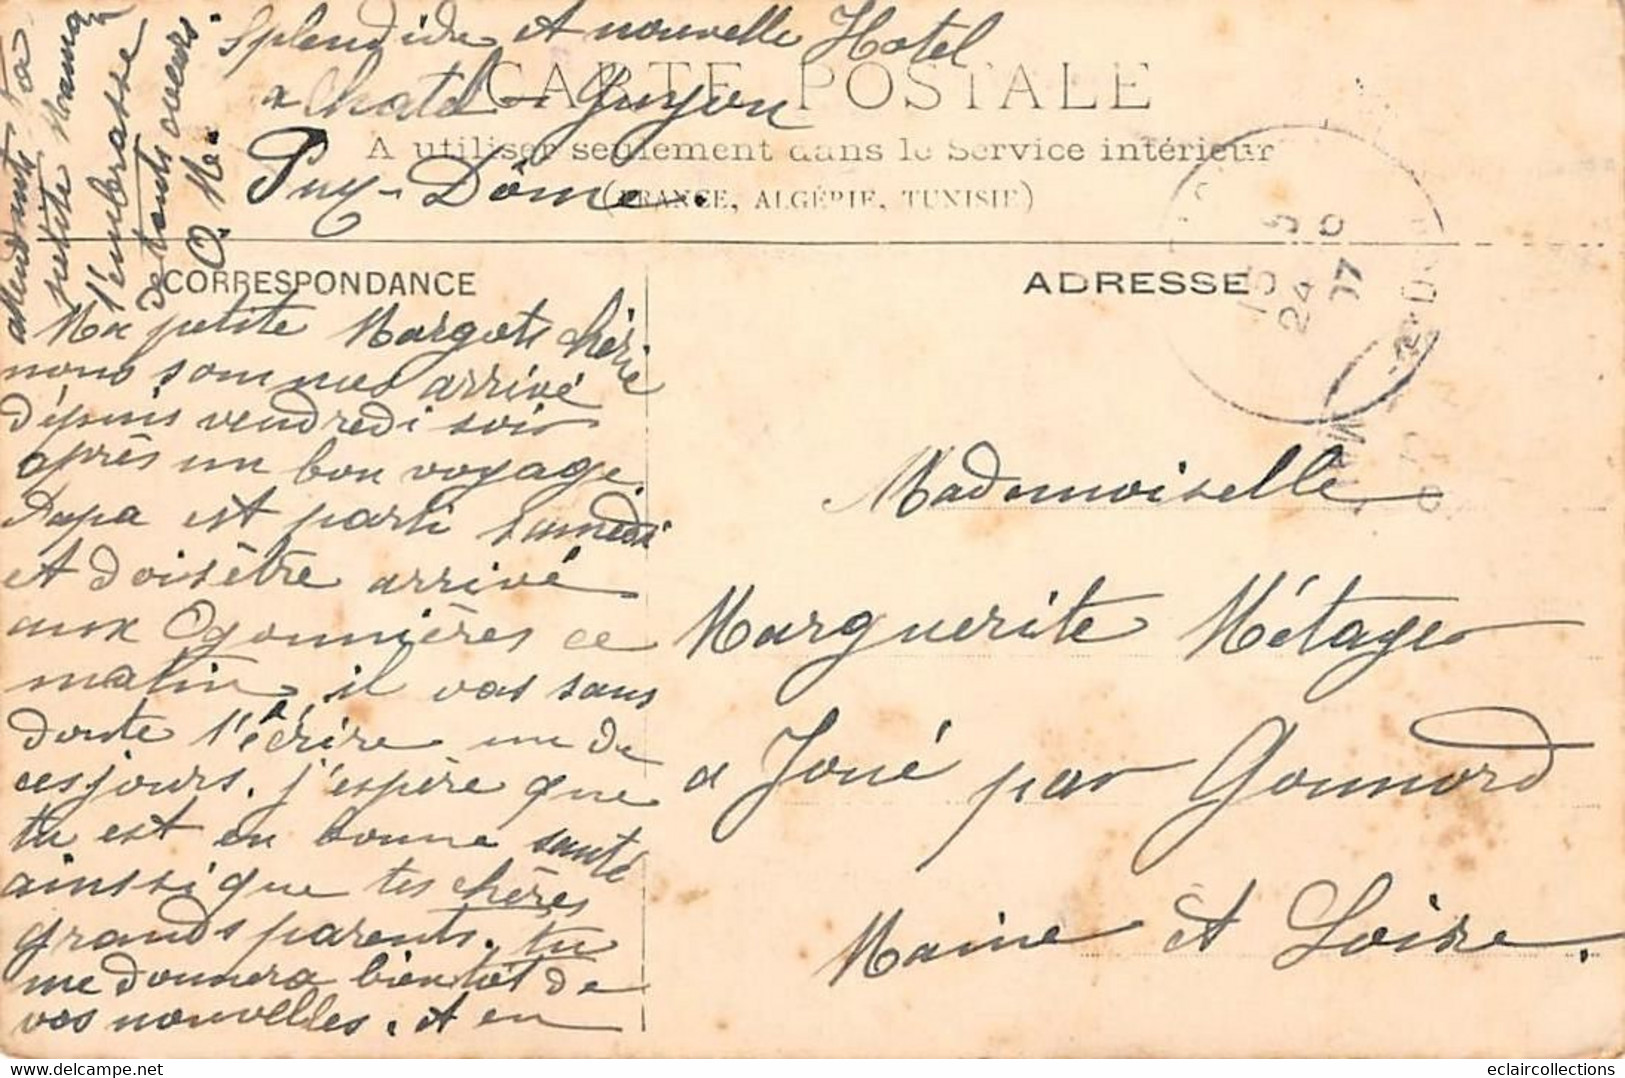 Splendide et nouvelle Hotel
a Chatel-Guyon
Puy-Dôme.
CARTE POSTALE
A utiliser seulement dans le Service intérieur
(FRANCE, ALGÉRIE, TUNISIE)
CORRESPONDANCE
ADRESSE
Ma petite Margots chérie
nous sommes arrivé
dépuis vendredi soir
après un bon voyage.
Papa est parti samedi
et doisêtre arrivé
aux Ogonnières ce
matin, il vas sans
doute t'écrire un de
ces jours. j'espère que
tu est en bonne santé
ainssi que tes chères
grands parents. tu
me donnera bientôt de
vos nouvelles. et en
attendants ta
petite Maman
t'embrasse
de touts coeurs
Mademoiselle
Marguerite Métager
a Joué par Gonnord
Maine et Loire.
24
07
eclaircollections